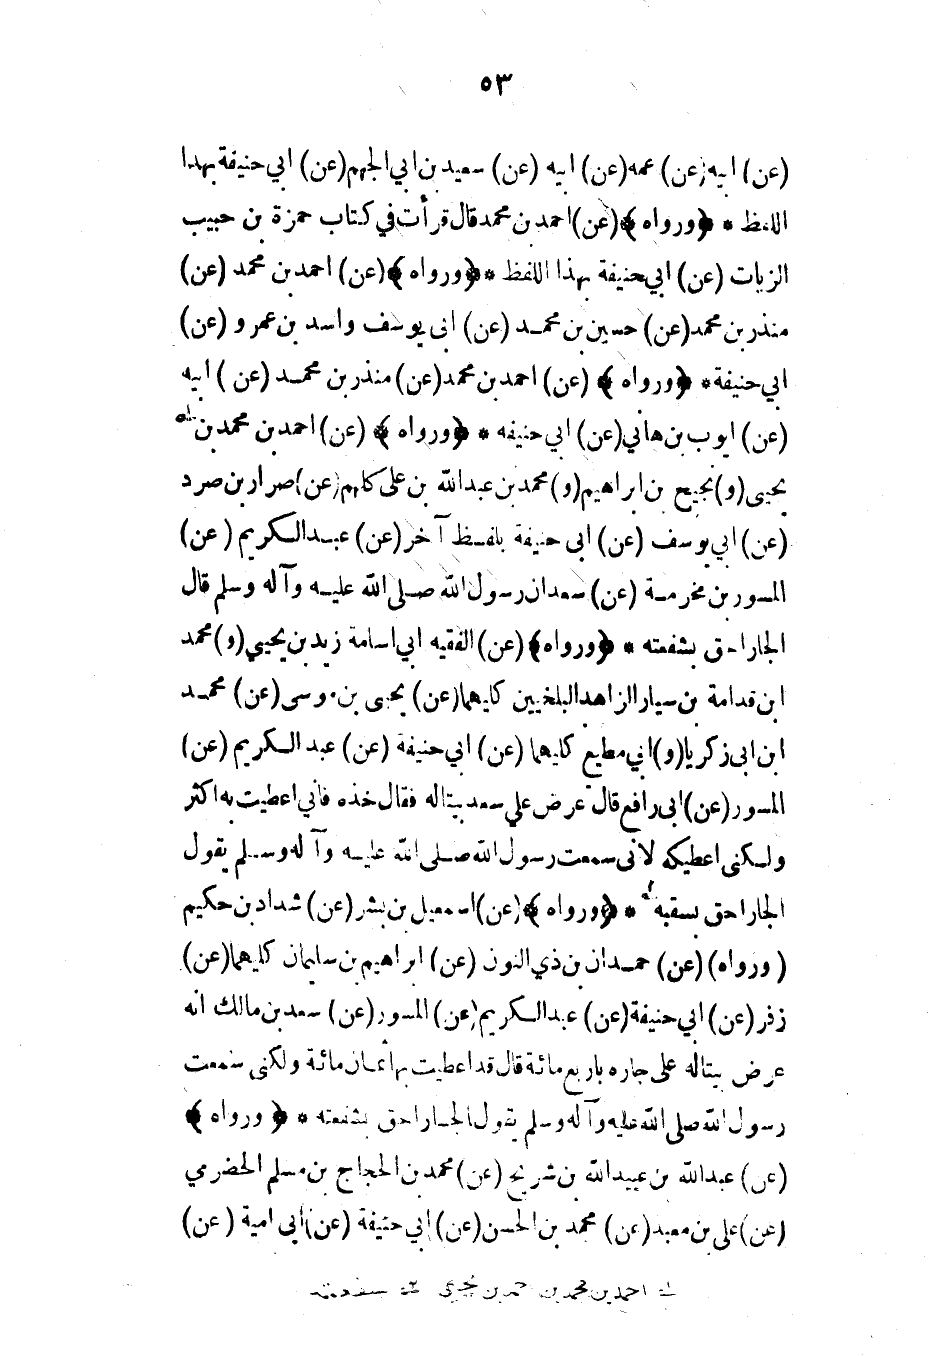 ٥٣
(عن) ابيه (عن) عمه (عن) ابيه (عن) سعيد بن ابي الجهم (عن) ابي حنيفة بهذا
اللفظ * ﴿ ورواه ﴾ (عن) احمد بن محمد قال قرأت في كتاب حمزة بن حبيب
الزيات (عن) ابي حنيفة بهذا اللفظ * ﴿ ورواه ﴾ (عن) احمد بن محمد (عن)
منذر بن محمد (عن) حسين بن محمد (عن) ابى يوسف واسد بن عمرو (عن)
ابي حنيفة * ﴿ ورواه ﴾ (عن) احمد بن محمد (عن) منذر بن محمد (عن) ابيه
(عن) ايوب بن هاني (عن) ابي حنيفه * ﴿ ورواه ﴾ (عن) احمد بن محمد بن
يحيى (و) نجيح بن ابراهيم (و) محمد بن عبدالله بن على كلهم (عن) ضرار بن صرد
(عن) ابي يوسف (عن) ابى حنيفة بلفظ آخر (عن) عبد الكريم (عن)
المسور بن مخرمة (عن) سعد ان رسول الله صلى الله عليه وآله وسلم قال
الجار احق بشفعته * ﴿ ورواه ﴾ (عن) الفقيه ابي اسامة زيد بن يحيي (و) محمد
ابن قدامة بن سيار الزاهد البلخيين كليهما (عن) يحيى بن موسى (عن) محمد
ابن ابى زكريا (و) ابي مطيع كليهما (عن) ابي حنيفة (عن) عبد الكريم (عن)
المسور (عن) ابى رافع قال عرض علي سعد بيتاله فقال خذه فاني اعطيت به اكثر
ولكنى اعطيكه لانى سمعت رسول الله صلى الله عليه وآله وسلم يقول
الجار احق بسقبه * ﴿ ورواه ﴾ (عن) اسمعيل بن بشر (عن) شداد بن حكيم
(ورواه) (عن) حمدان بن ذي النون (عن) ابراهيم بن سليمان كليهما (عن)
زفر (عن) ابي حنيفة (عن) عبد الكريم (عن) المسور (عن) سعد بن مالك انه
عرض بيتاله على جاره باربع مائة قال قد اعطيت بها ثمان مائة ولكنى سمعت
رسول الله صلى الله عليه وآله وسلم يقول الجار احق بشفعته * ﴿ ورواه ﴾
(عن) عبدالله بن عبيدالله بن شريح (عن) محمد بن الحجاج بن مسلم الحضرمي
(عن) على بن معبد (عن) محمد بن الحسن (عن) ابي حنيفة (عن) أبى امية (عن)
احمد بن محمد بن